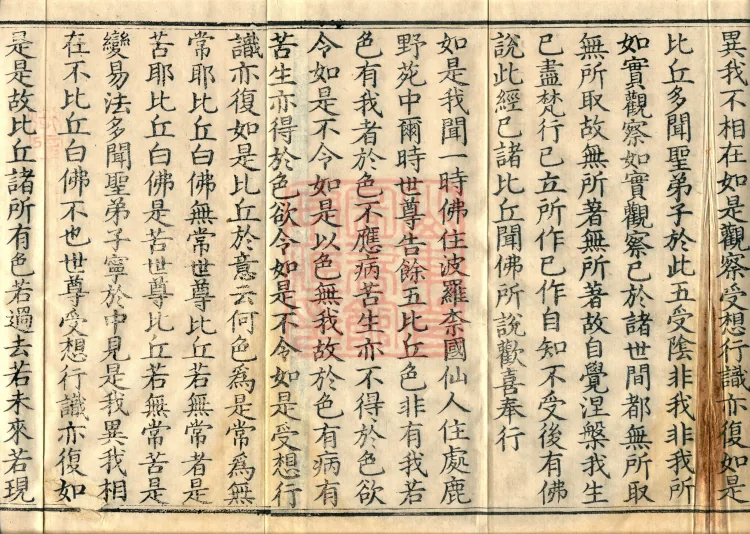 異我不相在如是觀察受想行識亦復如是
比丘多聞聖弟子於此五受陰非我非我所
如實觀察如實觀察已於諸世間都無所取
無所取故無所著無所著故自覺涅槃我生
已盡梵行已立所作已作自知不受後有佛
說此經已諸比丘聞佛所說歡喜奉行
如是我聞一時佛住波羅柰國仙人住處鹿
野苑中爾時世尊告餘五比丘色非有我若
色有我者於色不應病苦生亦不得於色欲
令如是不令如是以色無我故於色有病有
苦生亦得於色欲令如是不令如是受想行
識亦復如是比丘於意云何色為是常為無
常耶比丘白佛無常世尊比丘若無常者是
苦耶比丘白佛是苦世尊比丘若無常苦是
變易法多聞聖弟子寧於中見是我異我相
在不比丘白佛不也世尊受想行識亦復如
是是故比丘諸所有色若過去若未來若現